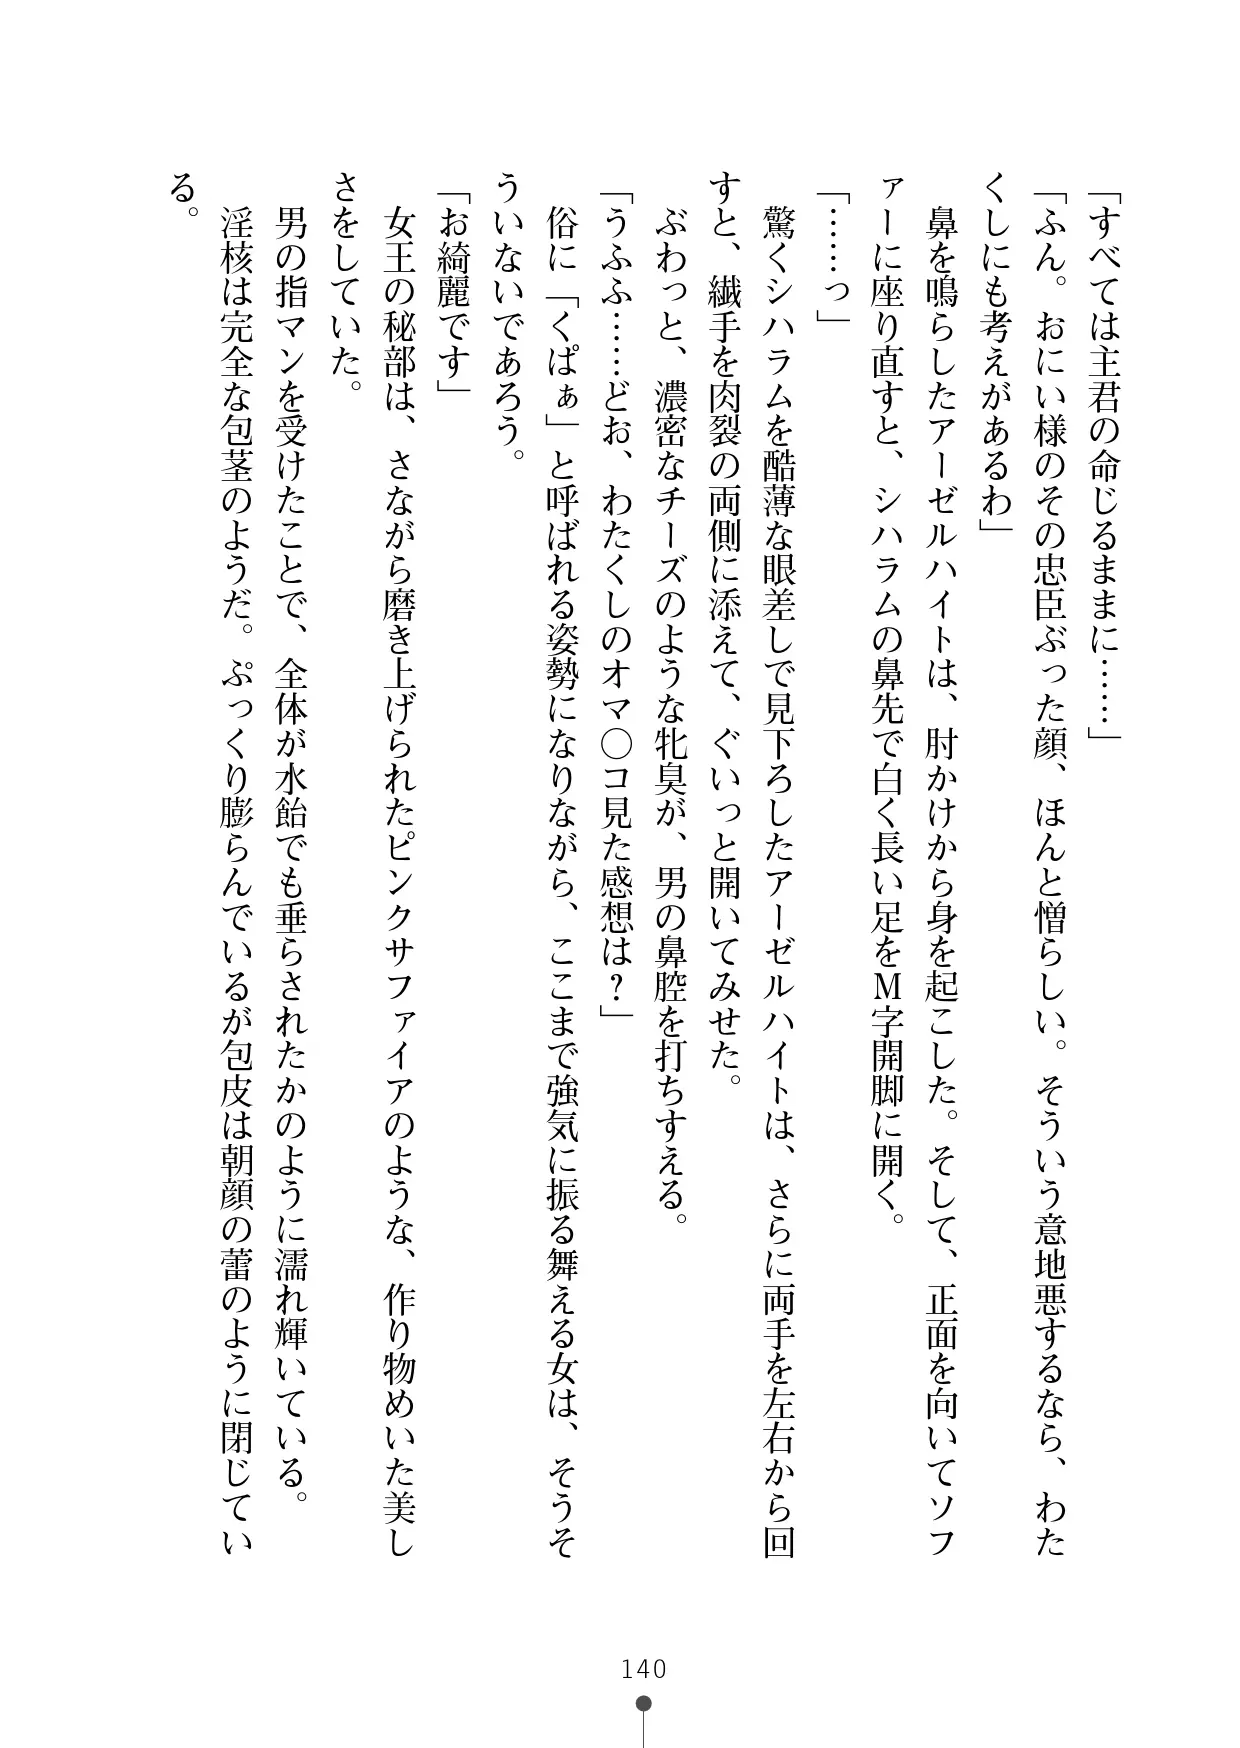 「すべては主君の命じるままに……」
「ふん。おにい様のその忠臣ぶった顔、ほんと憎らしい。そういう意地悪するなら、わた
くしにも考えがあるわ」
　鼻を鳴らしたアーゼルハイトは、肘かけから身を起こした。そして、正面を向いてソフ
ァーに座り直すと、シハラムの鼻先で白く長い足をＭ字開脚に開く。
「……っ」
　驚くシハラムを酷薄な眼差しで見下ろしたアーゼルハイトは、さらに両手を左右から回
すと、繊手を肉裂の両側に添えて、ぐいっと開いてみせた。
　ぶわっと、濃密なチーズのような牝臭が、男の鼻腔を打ちすえる。
「うふふ……どお、わたくしのオマ〇コ見た感想は？」
　俗に「くぱぁ」と呼ばれる姿勢になりながら、ここまで強気に振る舞える女は、そうそ
ういないであろう。
「お綺麗です」
　女王の秘部は、さながら磨き上げられたピンクサファイアのような、作り物めいた美し
さをしていた。
　男の指マンを受けたことで、全体が水飴でも垂らされたかのように濡れ輝いている。
　淫核は完全な包茎のようだ。ぷっくり膨らんでいるが包皮は朝顔の蕾のように閉じてい
る。
140